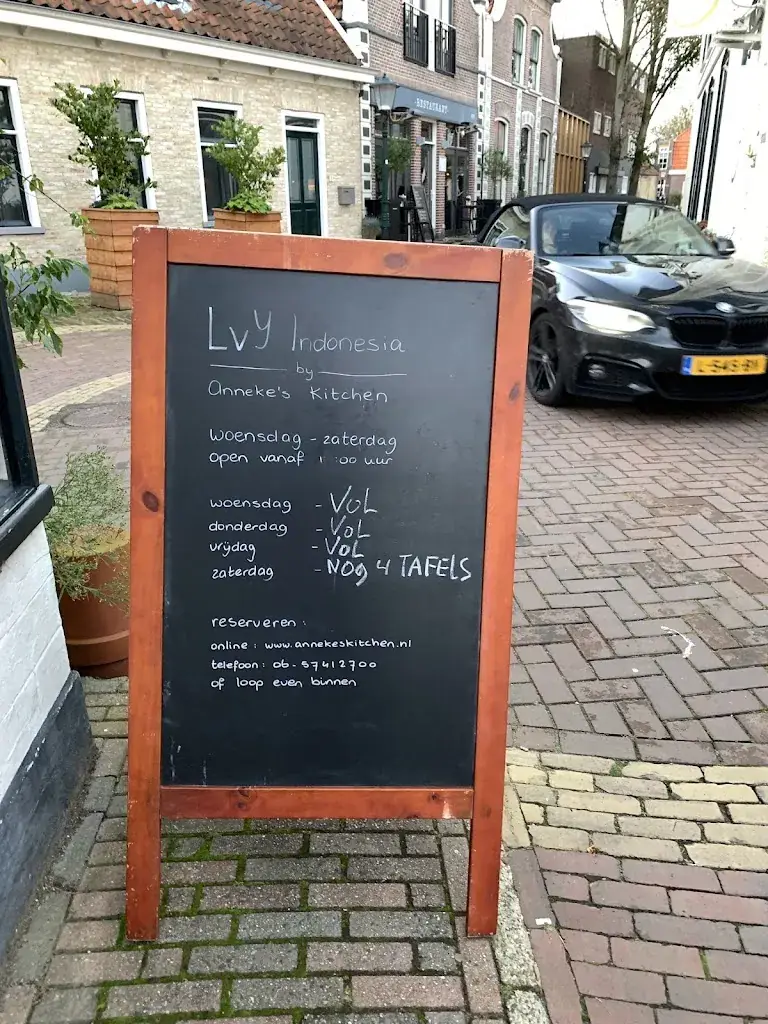 RESTAURANT
LvY Indonesia
by
Anneke's Kitchen
woensdag - zaterdag
open vanaf
uur
woensdag - VOL
donderdag - VOL
vrijdag - VOL
zaterdag - NOG 4 TAFELS
reserveren :
online : www.annekeskitchen.nl
telefoon : 06 - 57412700
of loop even binnen